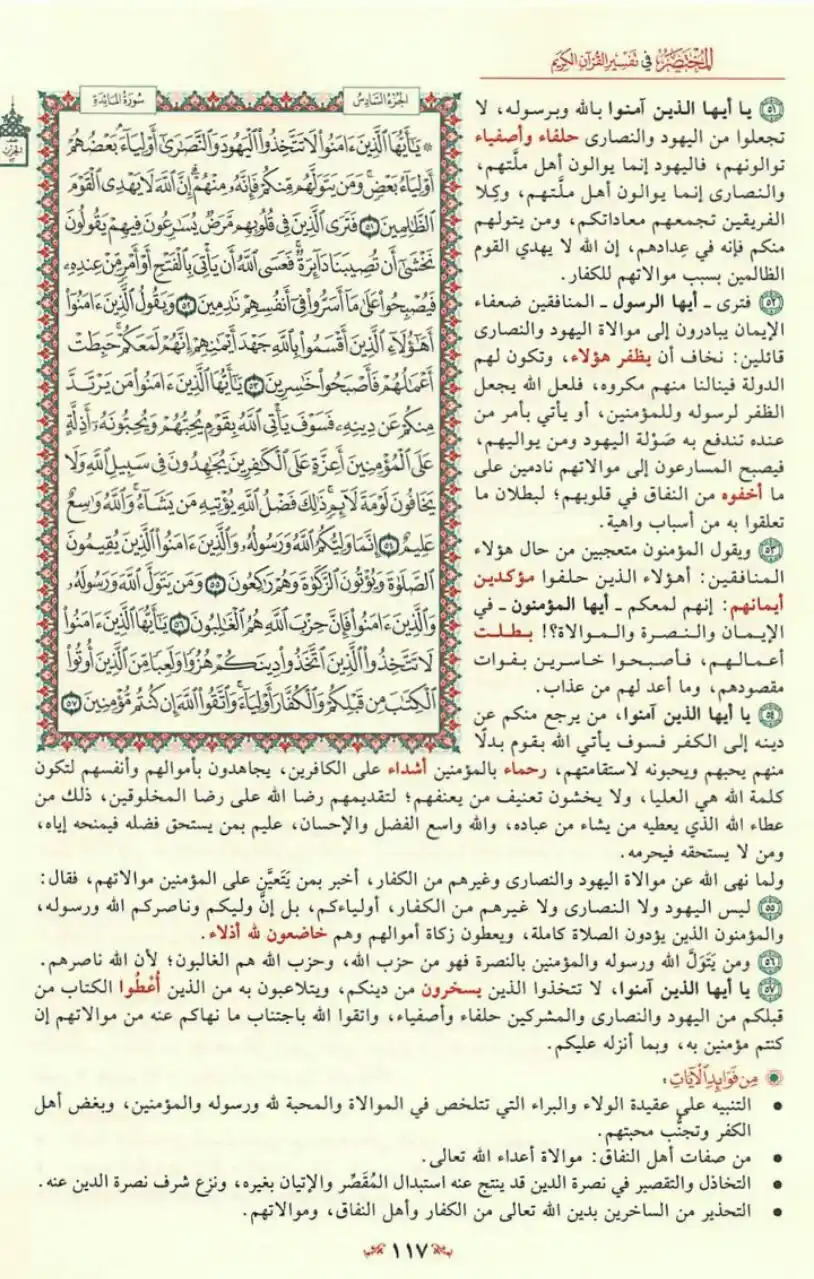 المختصر في تفسير القرآن الكريم
الجزء السادس
سورة المائدة
۞ يَٰٓأَيُّهَا ٱلَّذِينَ ءَامَنُوا۟ لَا تَتَّخِذُوا۟ ٱلْيَهُودَ وَٱلنَّصَٰرَىٰٓ أَوْلِيَآءَۘ بَعْضُهُمْ
أَوْلِيَآءُ بَعْضٍۚ وَمَن يَتَوَلَّهُم مِّنكُمْ فَإِنَّهُۥ مِنْهُمْۗ إِنَّ ٱللَّهَ لَا يَهْدِى ٱلْقَوْمَ
ٱلظَّٰلِمِينَ ٥١ فَتَرَى ٱلَّذِينَ فِى قُلُوبِهِم مَّرَضٌ يُسَٰرِعُونَ فِيهِمْ يَقُولُونَ
نَخْشَىٰٓ أَن تُصِيبَنَا دَآئِرَةٌۚ فَعَسَى ٱللَّهُ أَن يَأْتِىَ بِٱلْفَتْحِ أَوْ أَمْرٍ مِّنْ عِندِهِۦ
فَيُصْبِحُوا۟ عَلَىٰ مَآ أَسَرُّوا۟ فِىٓ أَنفُسِهِمْ نَٰدِمِينَ ٥٢ وَيَقُولُ ٱلَّذِينَ ءَامَنُوٓا۟
أَهَٰٓؤُلَآءِ ٱلَّذِينَ أَقْسَمُوا۟ بِٱللَّهِ جَهْدَ أَيْمَٰنِهِمْۙ إِنَّهُمْ لَمَعَكُمْۚ حَبِطَتْ
أَعْمَٰلُهُمْ فَأَصْبَحُوا۟ خَٰسِرِينَ ٥٣ يَٰٓأَيُّهَا ٱلَّذِينَ ءَامَنُوا۟ مَن يَرْتَدَّ
مِنكُمْ عَن دِينِهِۦ فَسَوْفَ يَأْتِى ٱللَّهُ بِقَوْمٍ يُحِبُّهُمْ وَيُحِبُّونَهُۥٓ أَذِلَّةٍ
عَلَى ٱلْمُؤْمِنِينَ أَعِزَّةٍ عَلَى ٱلْكَٰفِرِينَ يُجَٰهِدُونَ فِى سَبِيلِ ٱللَّهِ وَلَا
يَخَافُونَ لَوْمَةَ لَآئِمٍۚ ذَٰلِكَ فَضْلُ ٱللَّهِ يُؤْتِيهِ مَن يَشَآءُۚ وَٱللَّهُ وَٰسِعٌ
عَلِيمٌ ٥٤ إِنَّمَا وَلِيُّكُمُ ٱللَّهُ وَرَسُولُهُۥ وَٱلَّذِينَ ءَامَنُوا۟ ٱلَّذِينَ يُقِيمُونَ
ٱلصَّلَوٰةَ وَيُؤْتُونَ ٱلزَّكَوٰةَ وَهُمْ رَٰكِعُونَ ٥٥ وَمَن يَتَوَلَّ ٱللَّهَ وَرَسُولَهُۥ
وَٱلَّذِينَ ءَامَنُوا۟ فَإِنَّ حِزْبَ ٱللَّهِ هُمُ ٱلْغَٰلِبُونَ ٥٦ يَٰٓأَيُّهَا ٱلَّذِينَ ءَامَنُوا۟
لَا تَتَّخِذُوا۟ ٱلَّذِينَ ٱتَّخَذُوا۟ دِينَكُمْ هُزُوًا وَلَعِبًا مِّنَ ٱلَّذِينَ أُوتُوا۟
ٱلْكِتَٰبَ مِن قَبْلِكُمْ وَٱلْكُفَّارَ أَوْلِيَآءَۚ وَٱتَّقُوا۟ ٱللَّهَ إِن كُنتُم مُّؤْمِنِينَ ٥٧
٥١ يا أيها الذين آمنوا بالله وبرسوله، لا
تجعلوا من اليهود والنصارى حلفاء وأصفياء
توالونهم، فاليهود إنما يوالون أهل ملَّتهم،
والنصارى إنما يوالون أهل ملَّتهم، وكِلا
الفريقين تجمعهم معاداتكم، ومن يتولهم
منكم فإنه في عِدادهم، إن الله لا يهدي القوم
الظالمين بسبب موالاتهم للكفار.
٥٢ فترى ـ أيها الرسول ـ المنافقين ضعفاء
الإيمان يبادرون إلى موالاة اليهود والنصارى
قائلين: نخاف أن يظفر هؤلاء، وتكون لهم
الدولة فينالنا منهم مكروه، فلعل الله يجعل
الظفر لرسوله وللمؤمنين، أو يأتي بأمر من
عنده تندفع به صَوْلة اليهود ومن يواليهم،
فيصبح المسارعون إلى موالاتهم نادمين على
ما أخفوه من النفاق في قلوبهم؛ لبطلان ما
تعلقوا به من أسباب واهية.
٥٣ ويقول المؤمنون متعجبين من حال هؤلاء
المنافقين: أهؤلاء الذين حلفوا مؤكدين
أيمانهم: إنهم لمعكم ـ أيها المؤمنون ـ في
الإيمان والنصرة والموالاة؟! بطلت
أعمالهم، فأصبحوا خاسرين بفوات
مقصودهم، وما أعد لهم من عذاب.
٥٤ يا أيها الذين آمنوا، من يرجع منكم عن
دينه إلى الكفر فسوف يأتي الله بقوم بدلًا
منهم يحبهم ويحبونه لاستقامتهم، رحماء بالمؤمنين أشداء على الكافرين، يجاهدون بأموالهم وأنفسهم لتكون
كلمة الله هي العليا، ولا يخشون تعنيف من يعنفهم؛ لتقديمهم رضا الله على رضا المخلوقين، ذلك من
عطاء الله الذي يعطيه من يشاء من عباده، والله واسع الفضل والإحسان، عليم بمن يستحق فضله فيمنحه إياه،
ومن لا يستحقه فيحرمه.
ولما نهى الله عن موالاة اليهود والنصارى وغيرهم من الكفار، أخبر بمن يَتَعيَّن على المؤمنين موالاتهم، فقال:
٥٥ ليس اليهود ولا النصارى ولا غيرهم من الكفار، أولياءكم، بل إنَّ وليكم وناصركم الله ورسوله،
والمؤمنون الذين يؤدون الصلاة كاملة، ويعطون زكاة أموالهم وهم خاضعون لله أذلاء.
٥٦ ومن يَتَوَلَّ الله ورسوله والمؤمنين بالنصرة فهو من حزب الله، وحزب الله هم الغالبون؛ لأن الله ناصرهم.
٥٧ يا أيها الذين آمنوا، لا تتخذوا الذين يسخرون من دينكم، ويتلاعبون به من الذين أُعْطُوا الكتاب من
قبلكم من اليهود والنصارى والمشركين حلفاء وأصفياء، واتقوا الله باجتناب ما نهاكم عنه من موالاتهم إن
كنتم مؤمنين به، وبما أنزله عليكم.
من فوائد الآيات:
• التنبيه على عقيدة الولاء والبراء التي تتلخص في الموالاة والمحبة لله ورسوله والمؤمنين، وبغض أهل
الكفر وتجنُّب محبتهم.
• من صفات أهل النفاق: موالاة أعداء الله تعالى.
• التخاذل والتقصير في نصرة الدين قد ينتج عنه استبدال المُقَصِّر والإتيان بغيره، ونزع شرف نصرة الدين عنه.
• التحذير من الساخرين بدين الله تعالى من الكفار وأهل النفاق، وموالاتهم.
١١٧